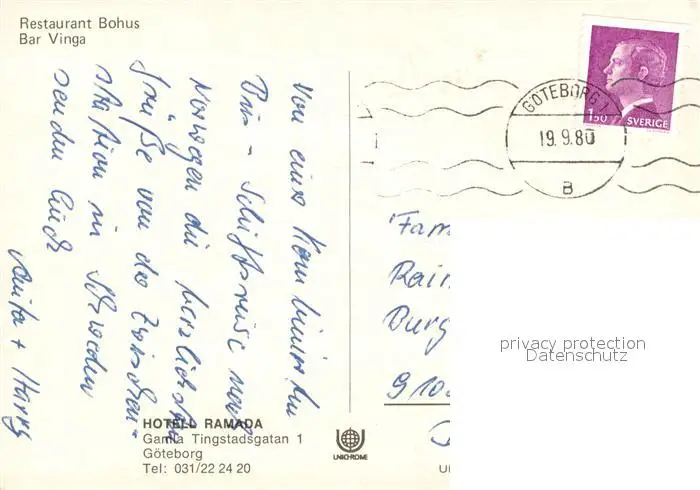 Restaurant Bohus
Bar Vinga
Von einer kombinierten
Bus - Schiffsreise nach
Norwegen die herzlichsten
Grüße von der Zwischen-
station in Schweden
senden Euch
Anita + Harry
GÖTEBORG 1
19.9.80
B
150 SVERIGE
Fam
Rain
Burg
910
privacy protection
Datenschutz
HOTELL RAMADA
Gamla Tingstadsgatan 1
Göteborg
Tel: 031/22 24 20
UNICHROME